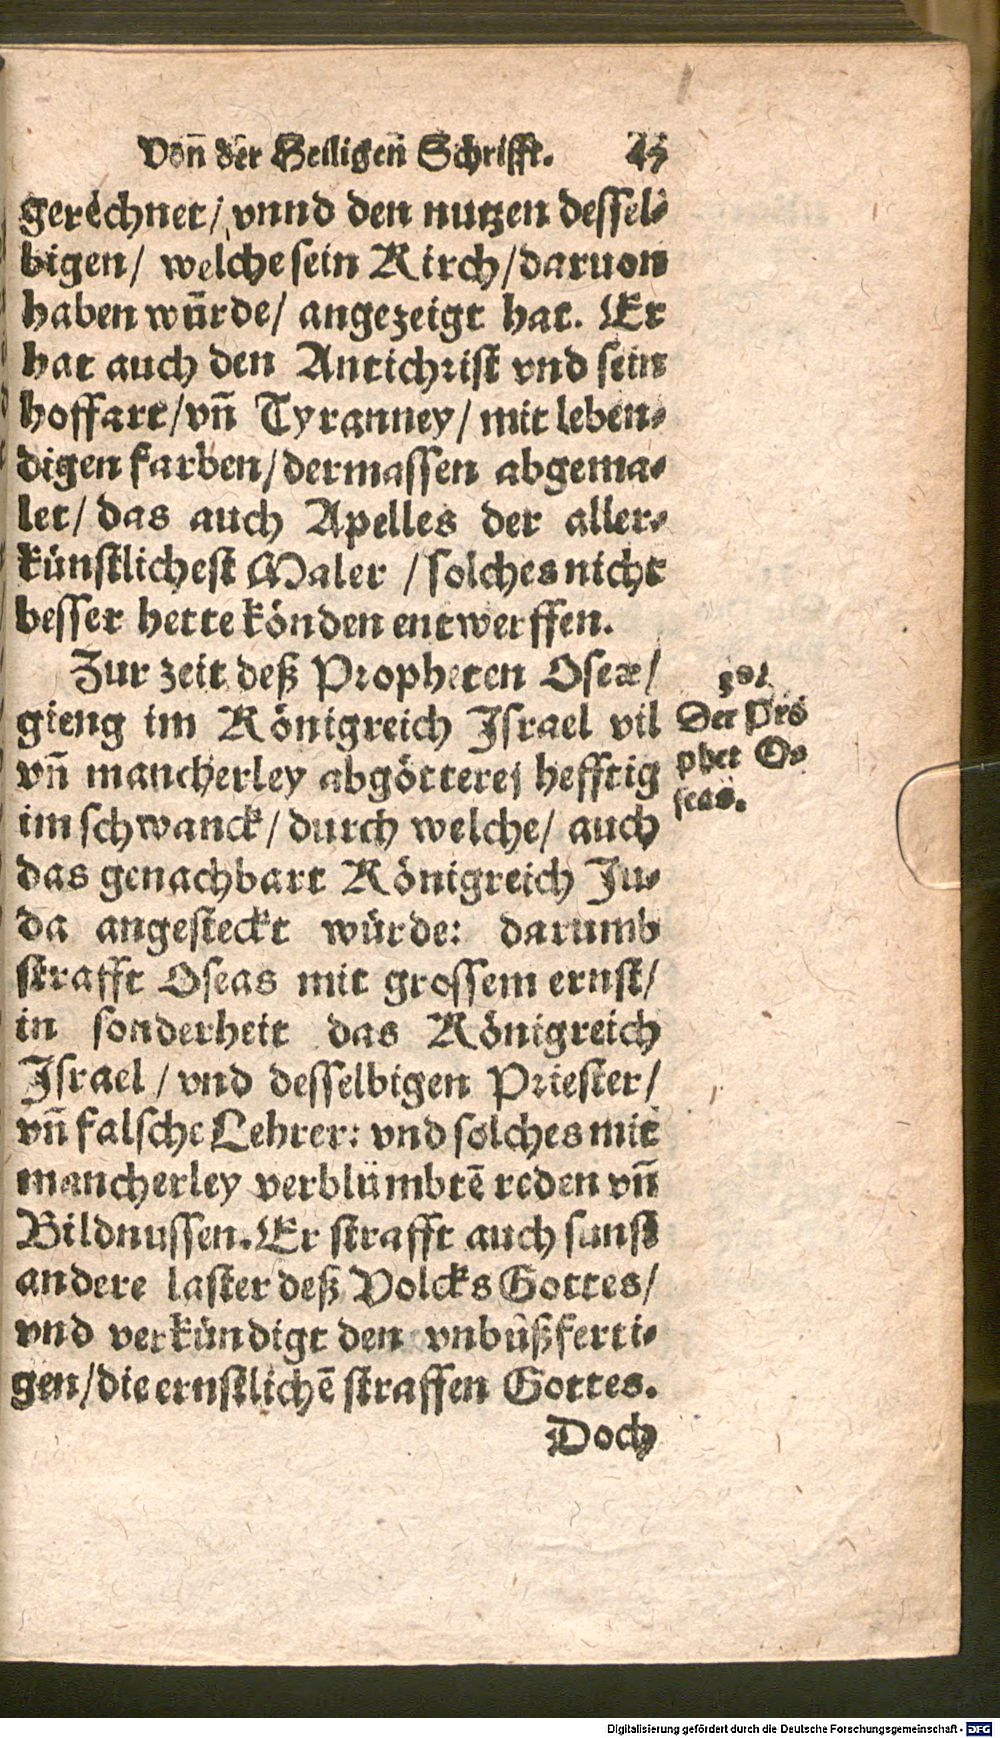 Von̄ der Heiligen̄ Schrifft. 45
gerechnet / vnnd den nutzen dessel-
bigen / welche sein Kirch / daruon
haben wūrde / angezeigt hat. Er
hat auch den Antichrist vnd sein
hoffart / vn̄ Tyranney / mit leben-
digen farben / dermassen abgema-
let / das auch Apelles der aller-
künstlichest Maler / solches nicht
besser hette könden entwerffen.
Zur zeit deß Propheten Oseæ /
gieng im Königreich Israel vil
vn̄ mancherley abgötterej hefftig
im schwanck / durch welche / auch
das genachbart Königreich Ju-
da angesteckt würde: darumb
strafft Oseas mit grossem ernst /
in sonderheit das Königreich
Israel / vnd desselbigen Priester /
vn̄ falsche Lehrer: vnd solches mit
mancherley verblümbtē reden vn̄
Bildnussen. Er strafft auch sunst
andere laster deß Volcks Gottes /
vnd verkündigt den vnbůßferti-
gen / die ernstlichē straffen Gottes.
Doch
Der Pro
phet O-
seas.
Digitalisierung gefördert durch die Deutsche Forschungsgemeinschaft - DFG